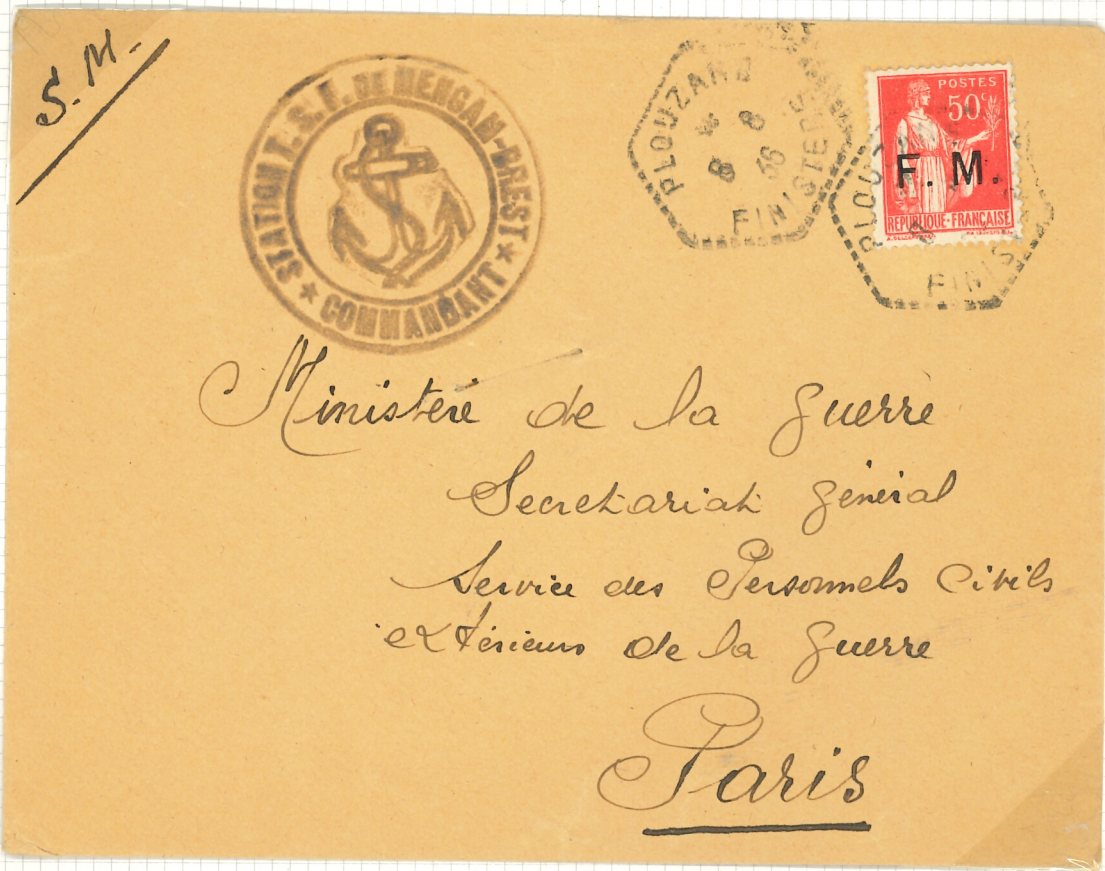 S. M.
STATION T. S. F. DE MENGAM-BREST
★ COMMANDANT ★
PLOUZANÉ
* 8
8 36
FINISTERE
POSTES
50c
F. M.
REPUBLIQUE-FRANÇAISE
PLOUZ
FINIS
Ministère de la Guerre
Secretariat Général
Service des Personnels Civils
extérieurs de la Guerre
Paris